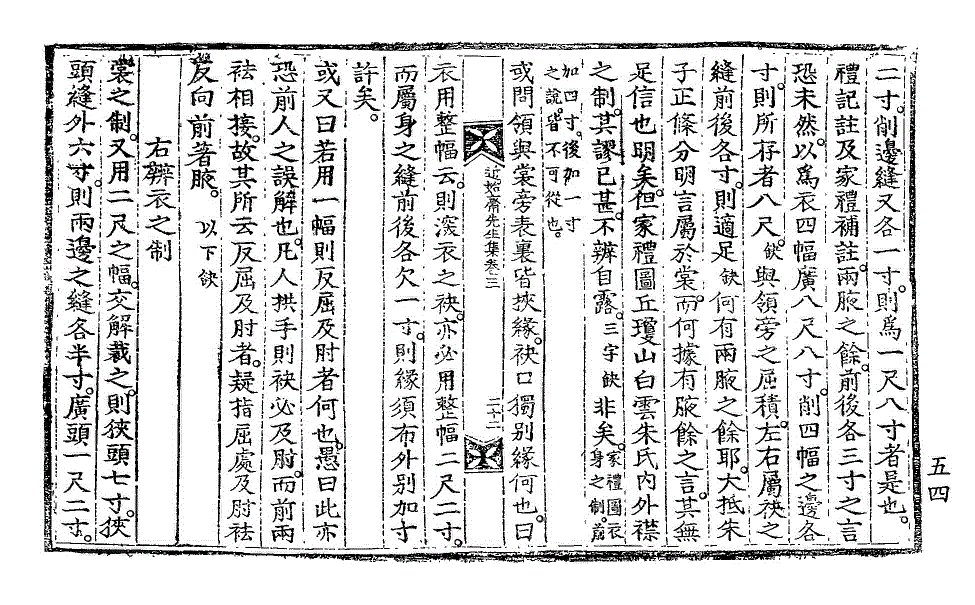 二寸削邊縫又各一寸則爲一尺八寸者是也
禮記註及家禮補註兩腋之餘前後各三寸之言
恐未然以爲衣四幅廣八尺八寸削四幅之邊各
寸則所存者八尺缺與領旁之屈積左右屬袂之
縫前後各寸則適足缺何有兩腋之餘耶大抵朱
子正條分明言屬於裳而何據有腋餘之言其無
足信也明矣但家禮圖丘瓊山白雲朱氏內外襟
之制其謬已甚不辨自露三字缺非矣家禮圖衣身之制前
加四寸後加一寸之說皆不可從也
或問領與裳旁表裏皆挾緣袂口獨別緣何也曰
近始齋先生集卷之三
二十二
衣用整幅云則深衣之袂亦必用整幅二尺二寸
而屬身之縫前後各欠一寸則緣須布外別加寸
許矣
或又曰若用一幅則反屈及肘者何也愚曰此亦
恐前人之誤解也凡人拱手則袂必及肘而前兩
袪相接故其所云反屈及肘者疑指屈處及肘袪
反向前著腋以下缺
右辨衣之制
裳之制又用二尺之幅交解裁之則狹頭七寸挾
頭縫外六寸則兩邊之縫各半寸廣頭一尺二寸
五四